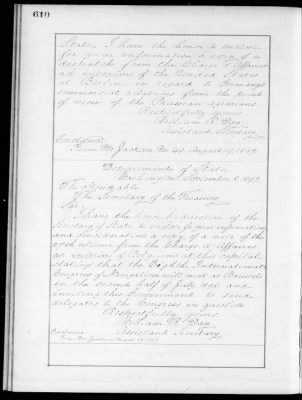 610
State, I have the honor to enclose
for your information a copy of a
despatch from the Chargé d'Affaires
ad interim of the United States
at Berlin in regard to Germany's
commercial relations from the point
of view of the Prussian agrarians.
Respectfully yours,
William R. Day
Assistant Secretary.
Enclosure:
From Mr. Jackson No. August 1897.
Department of State,
Washington, September 8, 1897.
The Honorable
The Secretary of the Treasury.
Sir:
I have the honor, by direction of the
Secretary of State, to enclose for your information
and consideration a copy of a note of the
27th ultimo from the Chargé d'Affaires
ad interim of Belgium at this capital
stating that the International
Congress of Navigation will meet at Brussels
in the second half of July 1898 and
inviting this Government to send
delegates to the Congress in question.
Respectfully yours,
William R. Day
Assistant Secretary.
Enclosure:
From August 27, 1897.